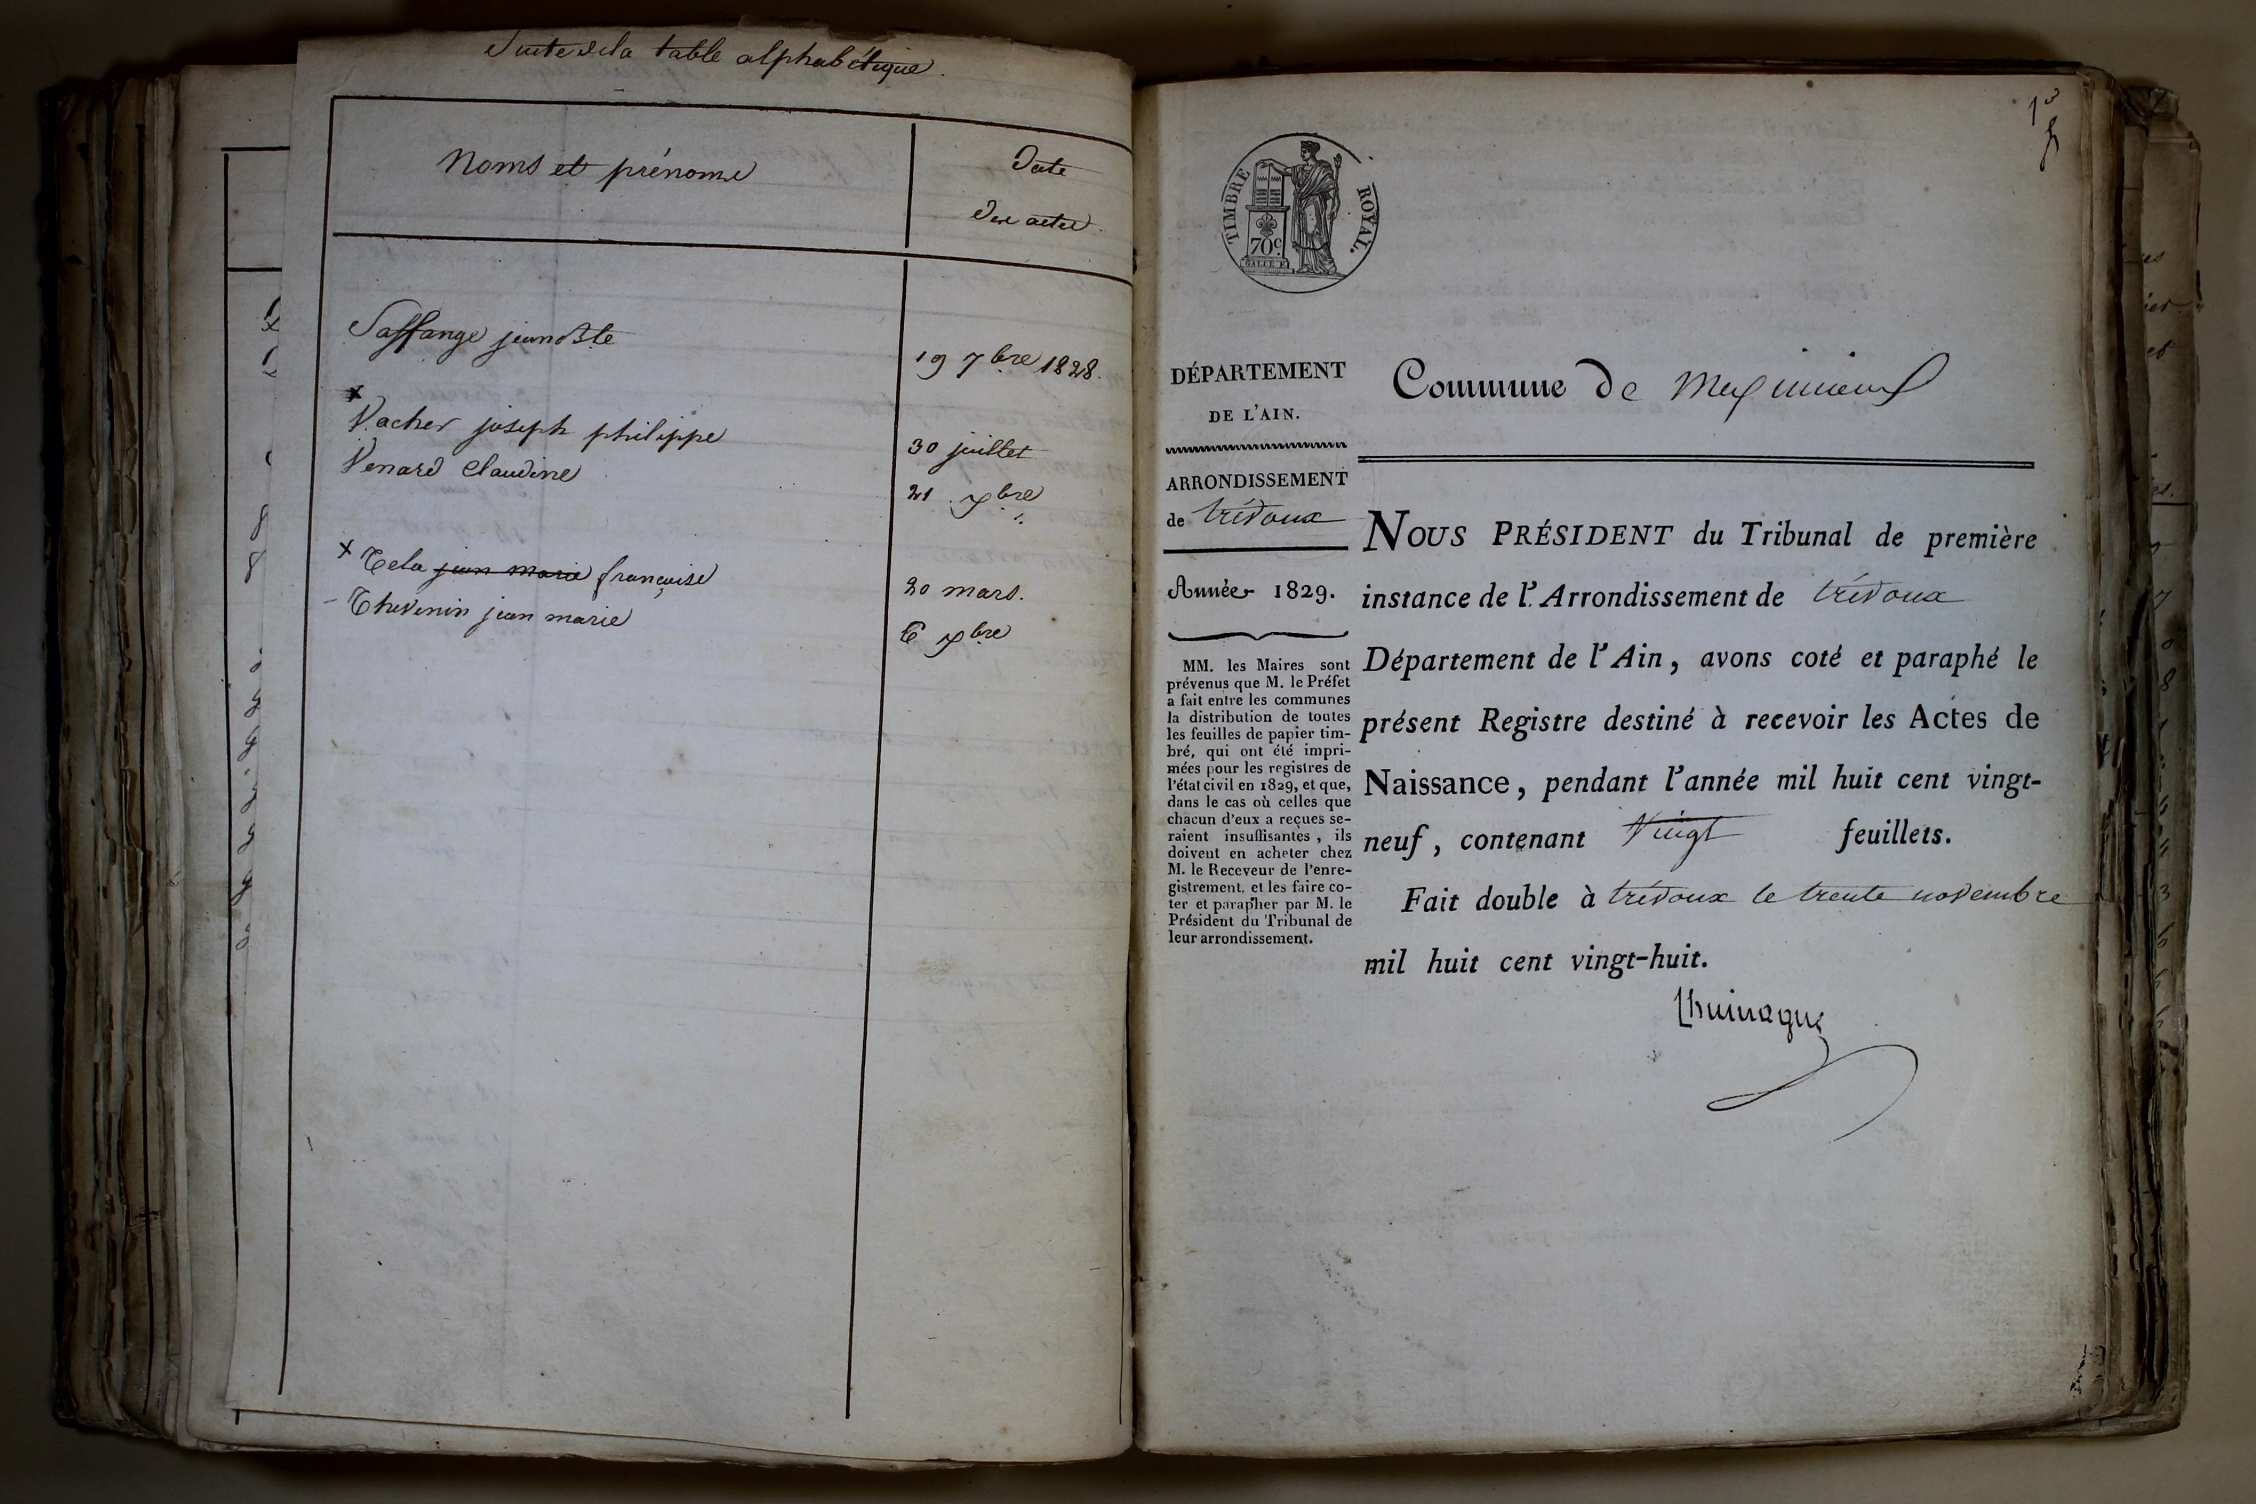 Suite de la table alphabétique.
Noms et prénoms
Date
des actes.
Saffange jean Bte
19 7bre 1828.
x
Vacher joseph philippe
30 juillet
Venard Claudine
21 xbre
x Tela jean marie françoise
20 mars.
- Thevenin jean marie
6 xbre
TIMBRE ROYAL.
70c.
DÉPARTEMENT
DE L'AIN.
Commune de Meximieux
ARRONDISSEMENT
de trévoux
Année 1829.
MM. les Maires sont
prévenus que M. le Préfet
a fait entre les communes
la distribution de toutes
les feuilles de papier tim-
bré, qui ont été impri-
mées pour les registres de
l'état civil en 1829, et que,
dans le cas où celles que
chacun d'eux a reçues se-
raient insuffisantes, ils
doivent en acheter chez
M. le Receveur de l'enre-
gistrement, et les faire co-
ter et parapher par M. le
Président du Tribunal de
leur arrondissement.
NOUS PRÉSIDENT du Tribunal de première
instance de l'Arrondissement de trévoux
Département de l'Ain, avons coté et paraphé le
présent Registre destiné à recevoir les Actes de
Naissance, pendant l'année mil huit cent vingt-
neuf, contenant Vingt feuillets.
Fait double à trévoux le trente novembre
mil huit cent vingt-huit.